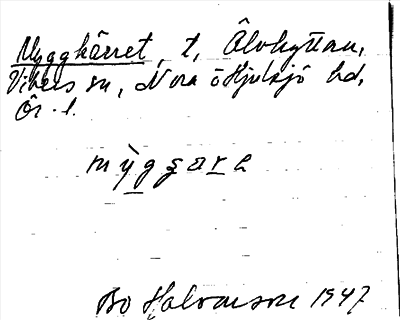 Myggkärret, t, Älvhyttan,
Vikers sn, Nora o Hjulsjö hd,
Ör. l.
mỳgʒ̣are
Bo Halvarson 1947